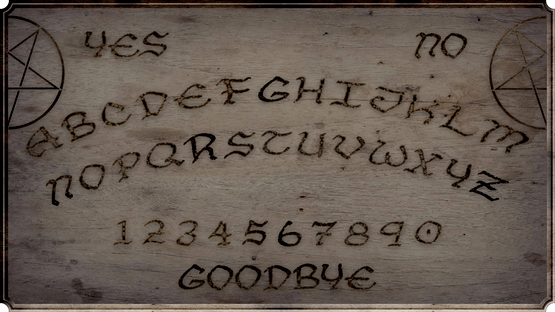 YES NO
ABCDEFGHIJKLM
NOPQRSTUVWXYZ
1234567890
GOODBYE